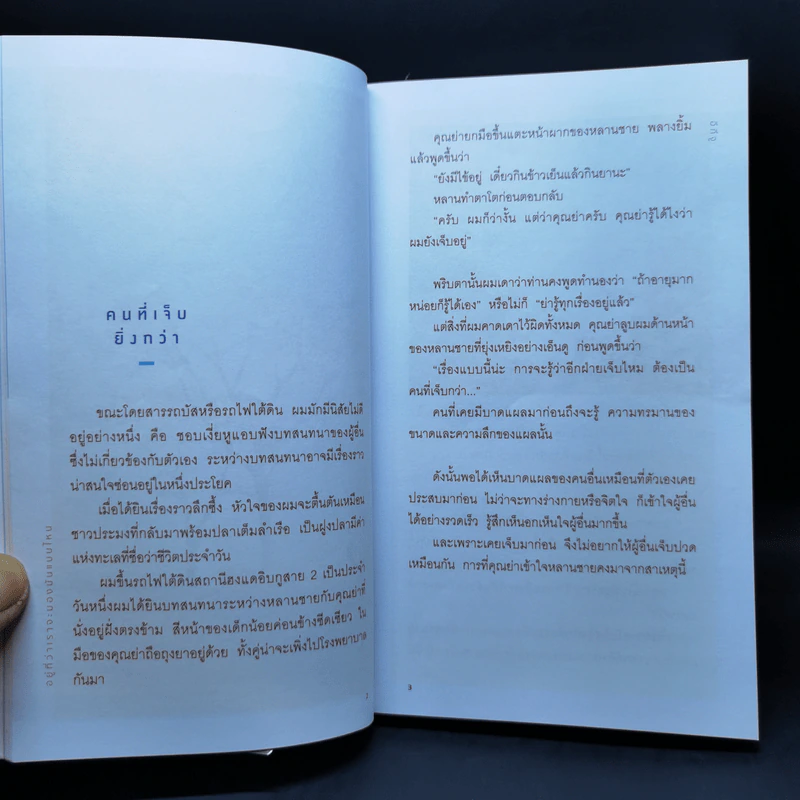 คนที่เจ็บ
ยิ่งกว่า
ขณะโดยสารรถบัสหรือรถไฟใต้ดิน ผมมักมีนิสัยไม่ดี
อยู่อย่างหนึ่ง คือ ชอบเงี่ยหูแอบฟังบทสนทนาของผู้อื่น
ซึ่งไม่เกี่ยวข้องกับตัวเอง ระหว่างบทสนทนาอาจมีเรื่องราว
น่าสนใจซ่อนอยู่ในหนึ่งประโยค
เมื่อได้ยินเรื่องราวลึกซึ้ง หัวใจของผมจะตื้นตันเหมือน
ชาวประมงที่กลับมาพร้อมปลาเต็มลำเรือ เป็นฝูงปลามีค่า
แห่งทะเลที่ชื่อว่าชีวิตประจำวัน
ผมขึ้นรถไฟใต้ดินสถานีฮงแดอิบกูสาย 2 เป็นประจำ
วันหนึ่งผมได้ยินบทสนทนาระหว่างหลานชายกับคุณย่าที่
นั่งอยู่ฝั่งตรงข้าม สีหน้าของเด็กน้อยค่อนข้างซีดเซียว ใน
มือของคุณย่าถือถุงยาอยู่ด้วย ทั้งคู่น่าจะเพิ่งไปโรงพยาบาล
กันมา
คุณย่ายกมือขึ้นแตะหน้าผากของหลานชาย พลางยิ้ม
แล้วพูดขึ้นว่า
“ยังมีไข้อยู่ เดี๋ยวกินข้าวเย็นแล้วกินยานะ”
หลานทำตาโตก่อนตอบกลับ
“ครับ ผมก็ว่างั้น แต่ว่าคุณย่าครับ คุณย่ารู้ได้ไงว่า
ผมยังเจ็บอยู่”
พริบตานั้นผมเดาว่าท่านคงพูดทำนองว่า “ถ้าอายุมาก
หน่อยก็รู้ได้เอง” หรือไม่ก็ “ย่ารู้ทุกเรื่องอยู่แล้ว”
แต่สิ่งที่ผมคาดเดาไว้ผิดทั้งหมด คุณย่าลูบผมด้านหน้า
ของหลานชายที่ยุ่งเหยิงอย่างเอ็นดู ก่อนพูดขึ้นว่า
“เรื่องแบบนี้น่ะ การจะรู้ว่าอีกฝ่ายเจ็บไหม ต้องเป็น
คนที่เจ็บกว่า...”
คนที่เคยมีบาดแผลมาก่อนถึงจะรู้ ความทรมานของ
ขนาดและความลึกของแผลนั้น
ดังนั้นพอได้เห็นบาดแผลของคนอื่นเหมือนที่ตัวเองเคย
ประสบมาก่อน ไม่ว่าจะทางร่างกายหรือจิตใจ ก็เข้าใจผู้อื่น
ได้อย่างรวดเร็ว รู้สึกเห็นอกเห็นใจผู้อื่นมากขึ้น
และเพราะเคยเจ็บมาก่อน จึงไม่อยากให้ผู้อื่นเจ็บปวด
เหมือนกัน การที่คุณย่าเข้าใจหลานชายคงมาจากสาเหตุนี้
3